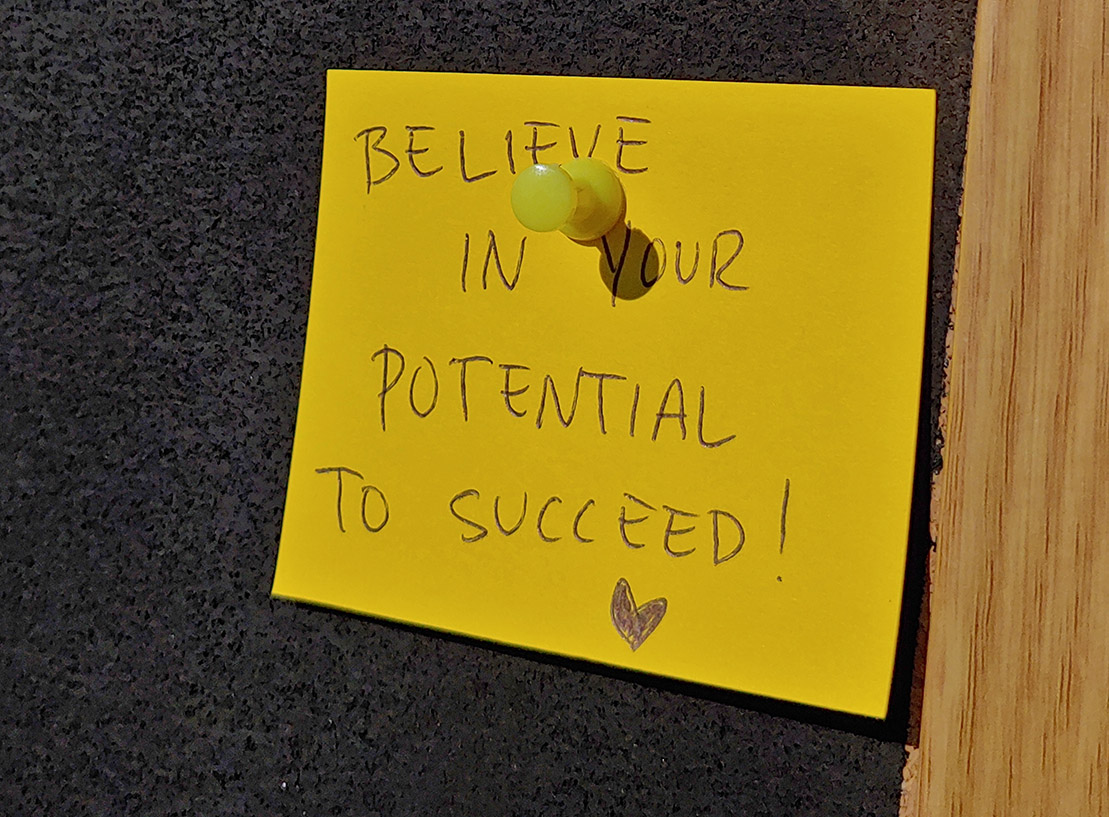 BELIEVE
IN YOUR
POTENTIAL
TO SUCCEED!